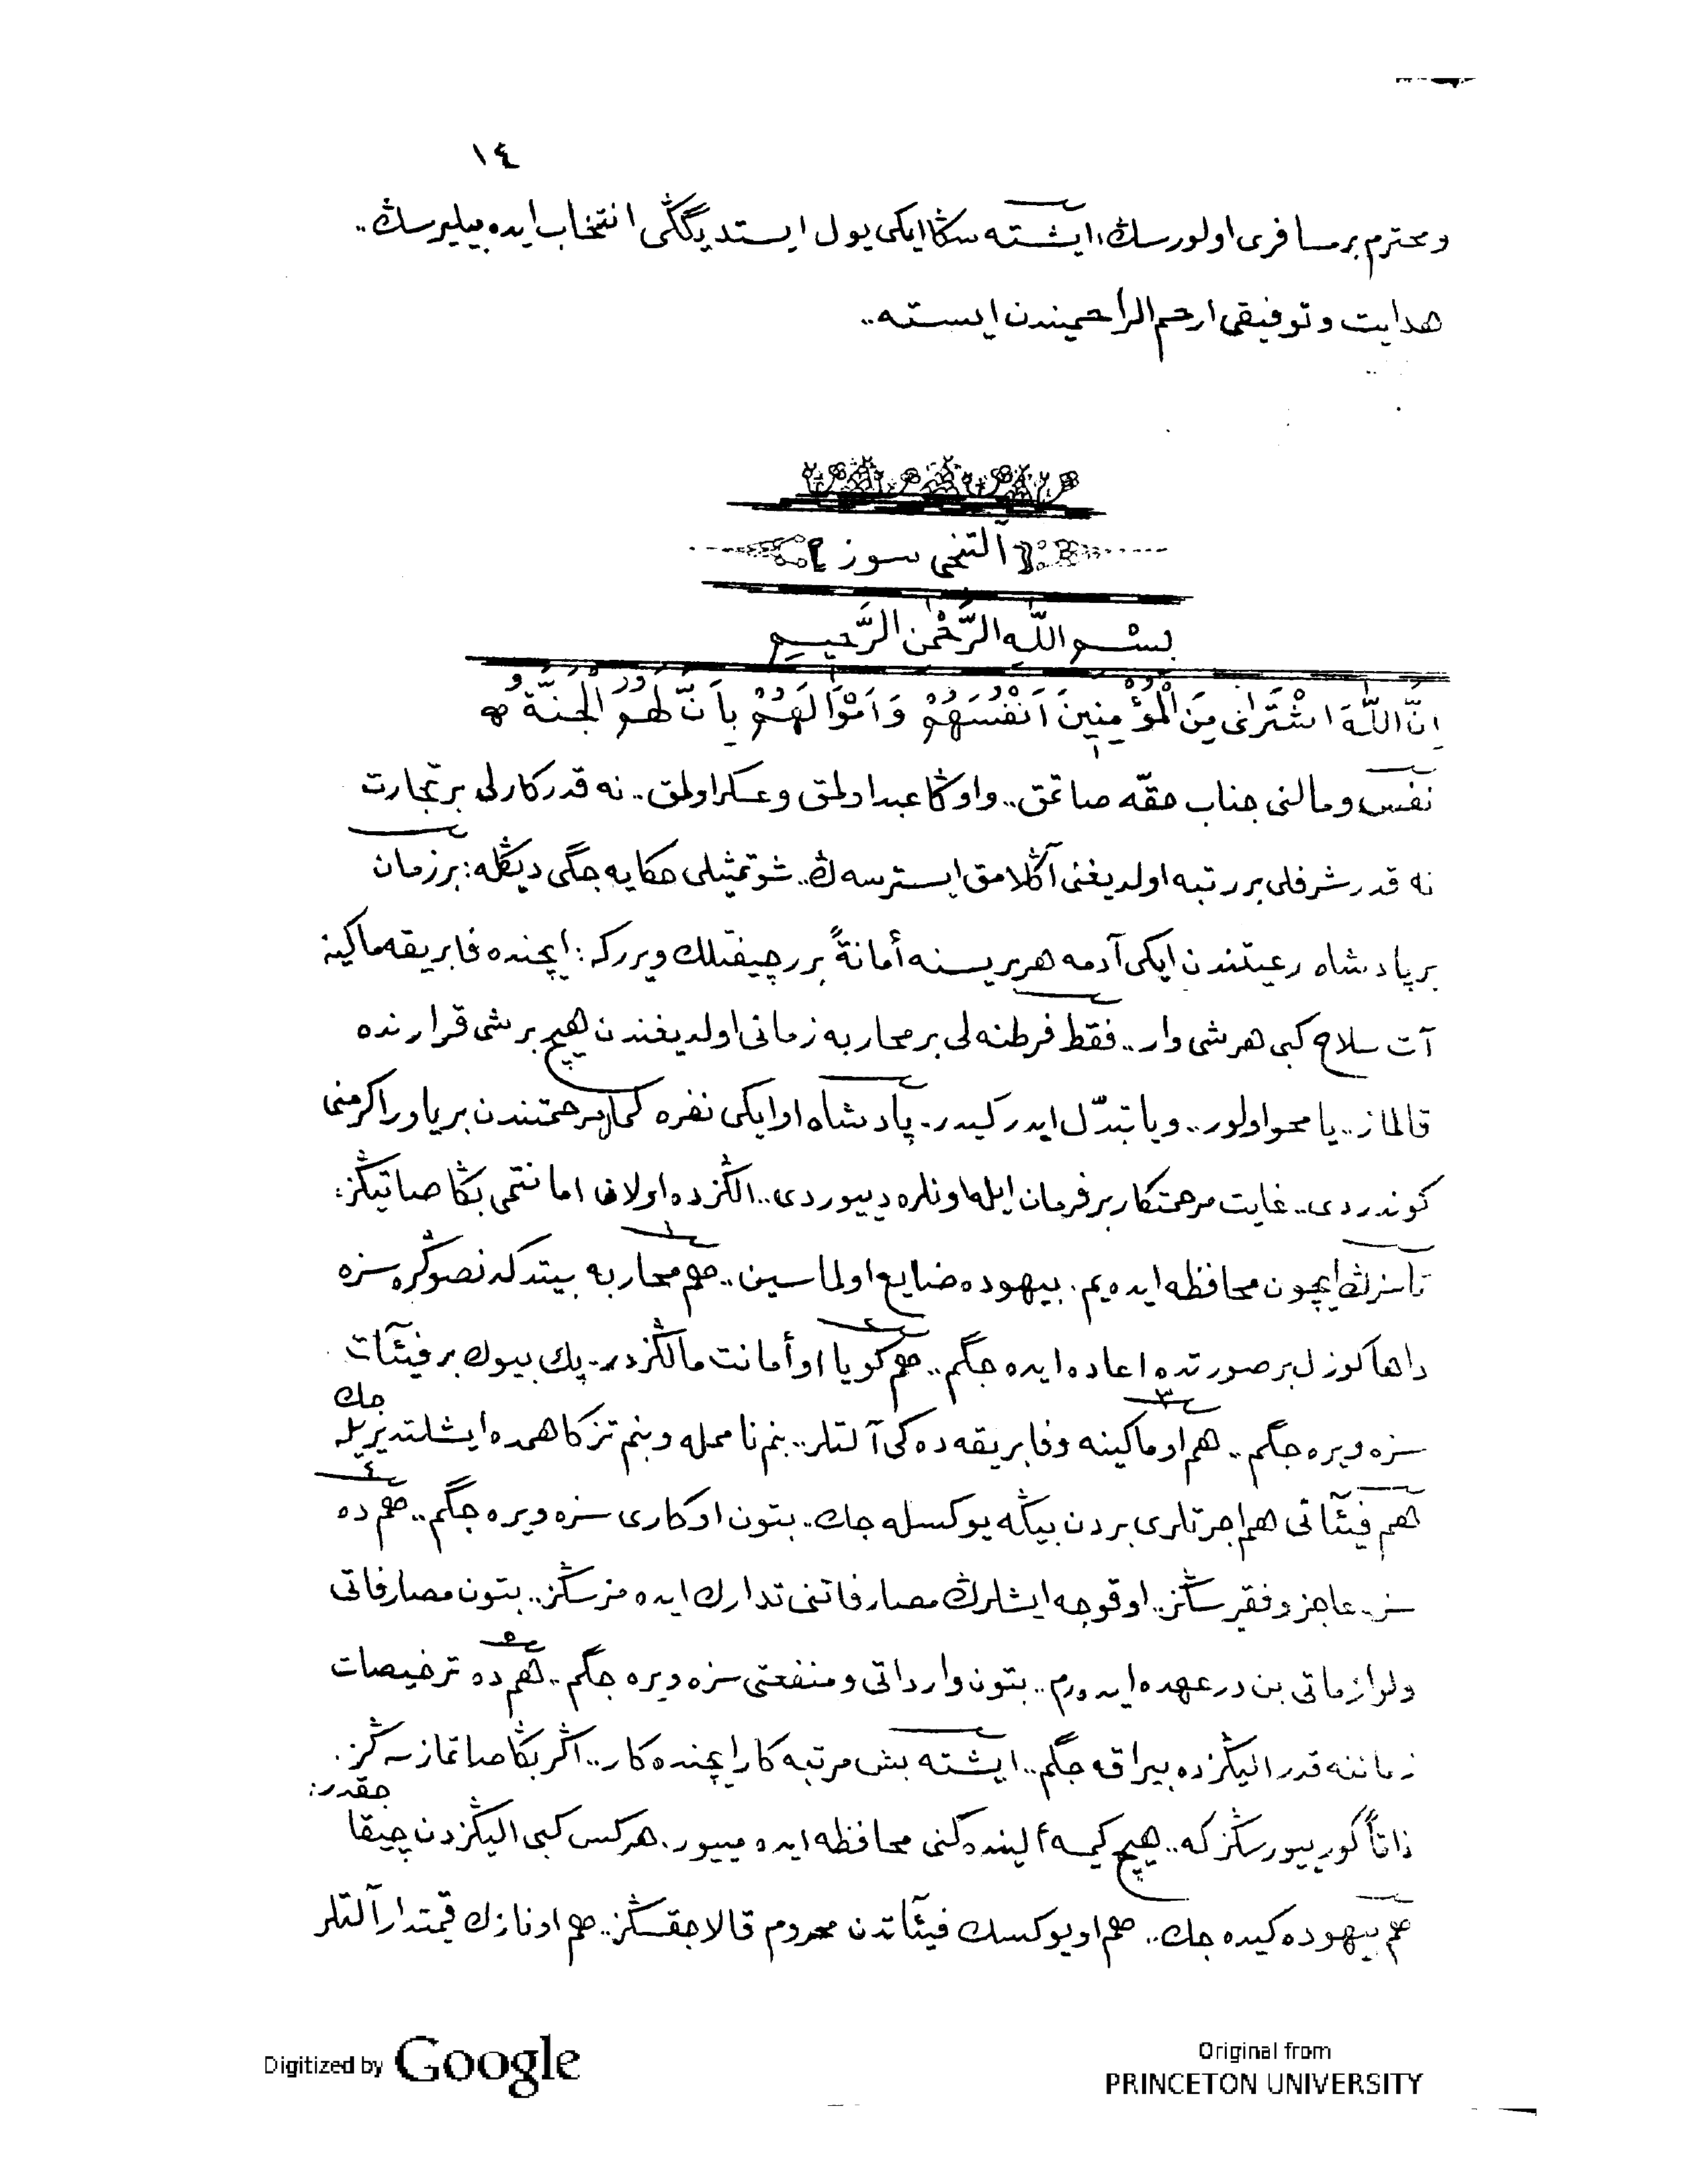 ١٤
و محترم بر مسافری اولورسڭ، ایشته سڭا ایکی یول ایستدیگڭی انتخاب ایده بیلیرسڭ..
هدایت و توفیقی ارحم الراحمیندن ایسته..
آلتنجی سوز
بِسْمِ اللّٰهِ الرَّحْمٰنِ الرَّحِيمِ
اِنَّ اللّٰهَ اشْتَرٰى مِنَ الْمُؤْمِنِينَ اَنْفُسَهُمْ وَاَمْوَالَهُمْ بِاَنَّ لَهُمُ الْجَنَّةَ
نفس و مالنی جناب حقّه صاتمق.. و اوڭا عبد اولمق و عسکر اولمق.. نه قدر کارلی بر تجارت
نه قدر شرفلی بر رتبه اولدیغنی آڭلامق ایسترسه ڭ.. شو تمثیلی حکایه جگی دیڭله: بر زمان
بر پادشاه رعیتندن ایکی آدمه هر بریسنه أمانةً برر چیفتلك ویررکه: ایچنده فابریقه ماکینه
آت سلاح کبی هر شی وار.. فقط فرطنه لی بر محاربه زمانی اولدیغندن هیچ بر شی قرارنده
قالماز.. یا محو اولور.. ویا تبدّل ایدر کیدر.. پادشاه او ایکی نفره کمال مرحمتندن بر یاور اکرمنی
کوندردی.. غایت مرحمتکار بر فرمان ایله اونلره دییوردی.. الڭزده اولان امانتمی بڭا صاتیڭز:
تا سزڭ ایچون محافظه ایده یم. بیهوده ضایع اولماسین.. هم محاربه بیتدکدنصوڭره سزه
١
داها کوزل بر صورتده اعاده ایده جگم.. هم کویا او أمانت مالڭزدر.. پك بیوك بر فیئآت
٢
سزه ویره جگم.. هم او ماکینه و فابریقه ده کی آلتلر.. بنم ناممله و بنم تزکاهمده ایشلتدیریله جك
٣
هم فیئآتی هم اجرتلری بردن بیڭه یوکسله جك.. بتون او کاری سزه ویره جگم.. هم ده
٤
سز.. عاجز و فقیرسڭز.. او قوجه ایشلرڭ مصارفاتنی تدارك ایده مزسڭز.. بتون مصارفاتی
و لوازماتی بن درعهده ایدرم.. بتون وارداتی و منفعتی سزه ویره جگم.. هم ده ترخیصات
٥
زماننه قدر الیڭزده بیراقه جگم.. ایشته بش مرتبه کار ایچنده کار.. اڭر بڭا صاتمازسه ڭز.
ذاتاً کورییورسڭز که.. هیچ کیمسه ألینده کنی محافظه ایده مییور. هرکس کبی الیڭزدن چیقا جقدر:
هم بیهوده کیده جك.. هم او یوکسك فیئآتدن محروم قالاجقسڭز.. هم او نازك قیمتدار آلتلر
Digitized by Google
Original from
PRINCETON UNIVERSITY